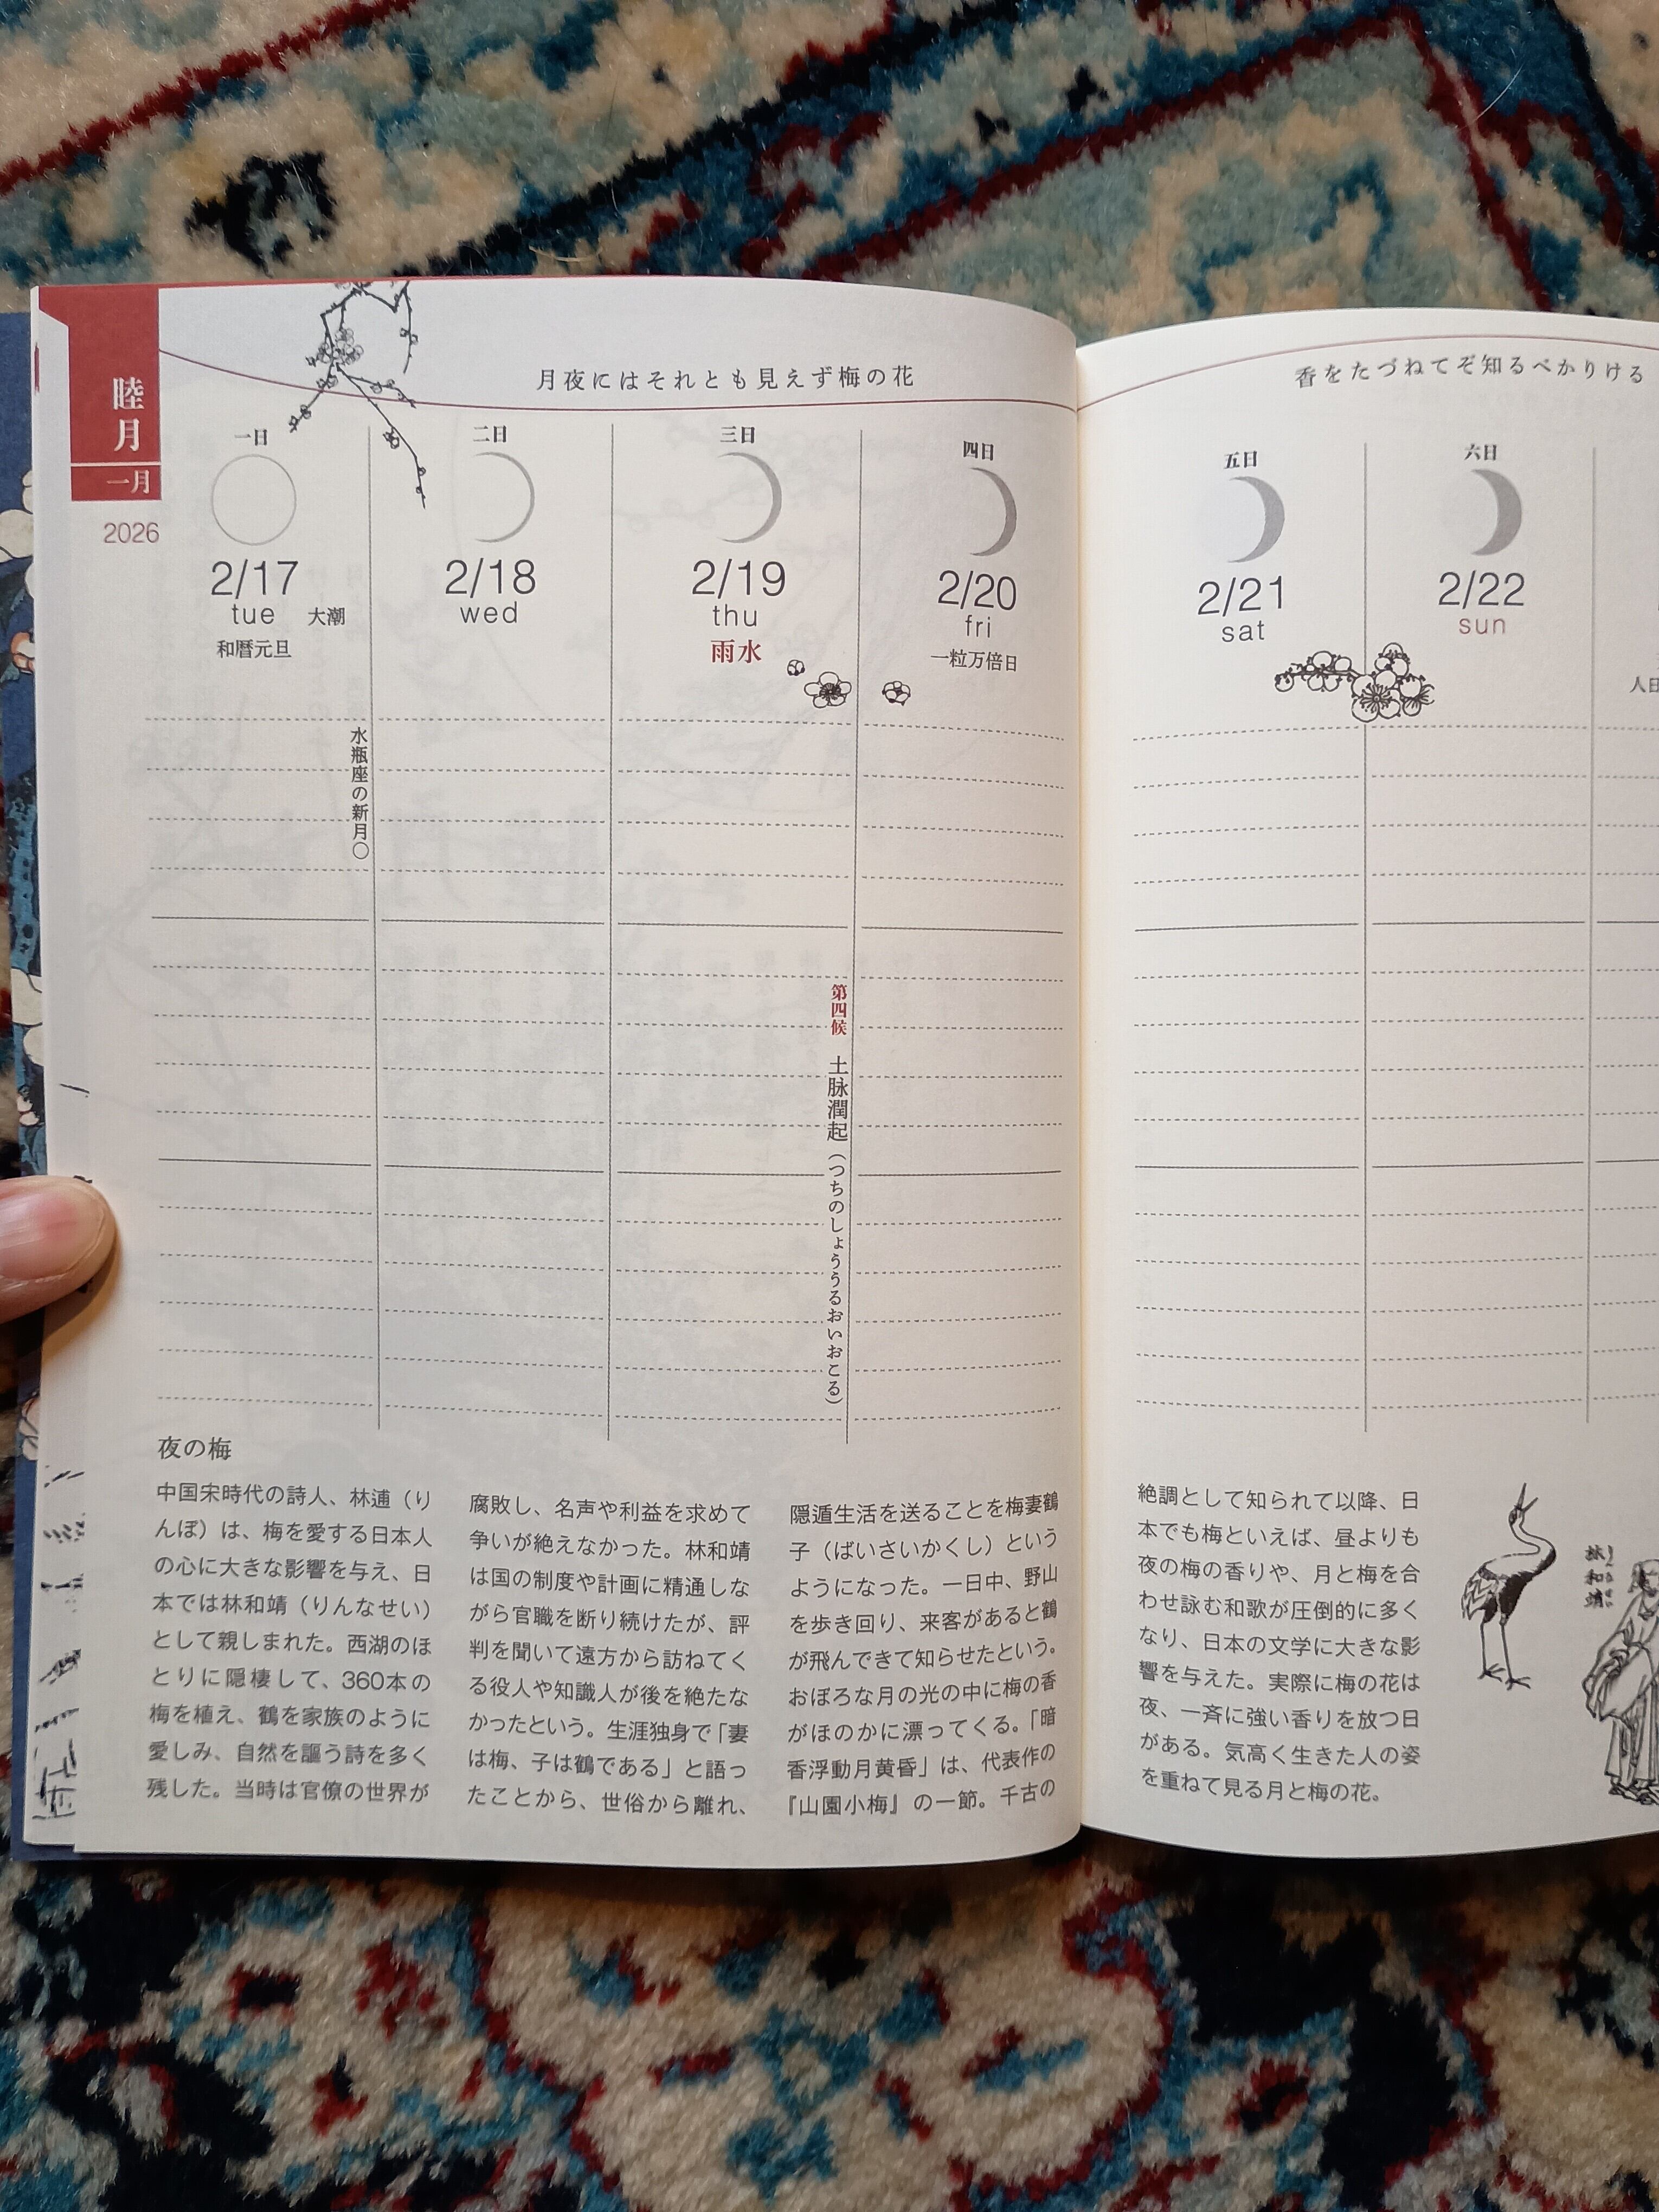 睦月
一月
2026
月夜にはそれとも見えず梅の花
香をたづねてぞ知るべかりける
一日
2/17
tue 大潮
和暦元旦
水瓶座の新月○
二日
2/18
wed
三日
2/19
thu
雨水
第四候 土脉潤起（つちのしょううるおいおこる）
四日
2/20
fri
一粒万倍日
五日
2/21
sat
六日
2/22
sun
人日
夜の梅
中国宋時代の詩人、林逋（り
んぽ）は、梅を愛する日本人
の心に大きな影響を与え、日
本では林和靖（りんなせい）
として親しまれた。西湖のほ
とりに隠棲して、360本の
梅を植え、鶴を家族のように
愛しみ、自然を謳う詩を多く
残した。当時は官僚の世界が
腐敗し、名声や利益を求めて
争いが絶えなかった。林和靖
は国の制度や計画に精通しな
がら官職を断り続けたが、評
判を聞いて遠方から訪ねてく
る役人や知識人が後を絶たな
かったという。生涯独身で「妻
は梅、子は鶴である」と語っ
たことから、世俗から離れ、
隠遁生活を送ることを梅妻鶴
子（ばいさいかくし）という
ようになった。一日中、野山
を歩き回り、来客があると鶴
が飛んできて知らせたという。
おぼろな月の光の中に梅の香
がほのかに漂ってくる。「暗
香浮動月黄昏」は、代表作の
『山園小梅』の一節。千古の
絶調として知られて以降、日
本でも梅といえば、昼よりも
夜の梅の香りや、月と梅を合
わせ詠む和歌が圧倒的に多く
なり、日本の文学に大きな影
響を与えた。実際に梅の花は
夜、一斉に強い香りを放つ日
がある。気高く生きた人の姿
を重ねて見る月と梅の花。
林和靖